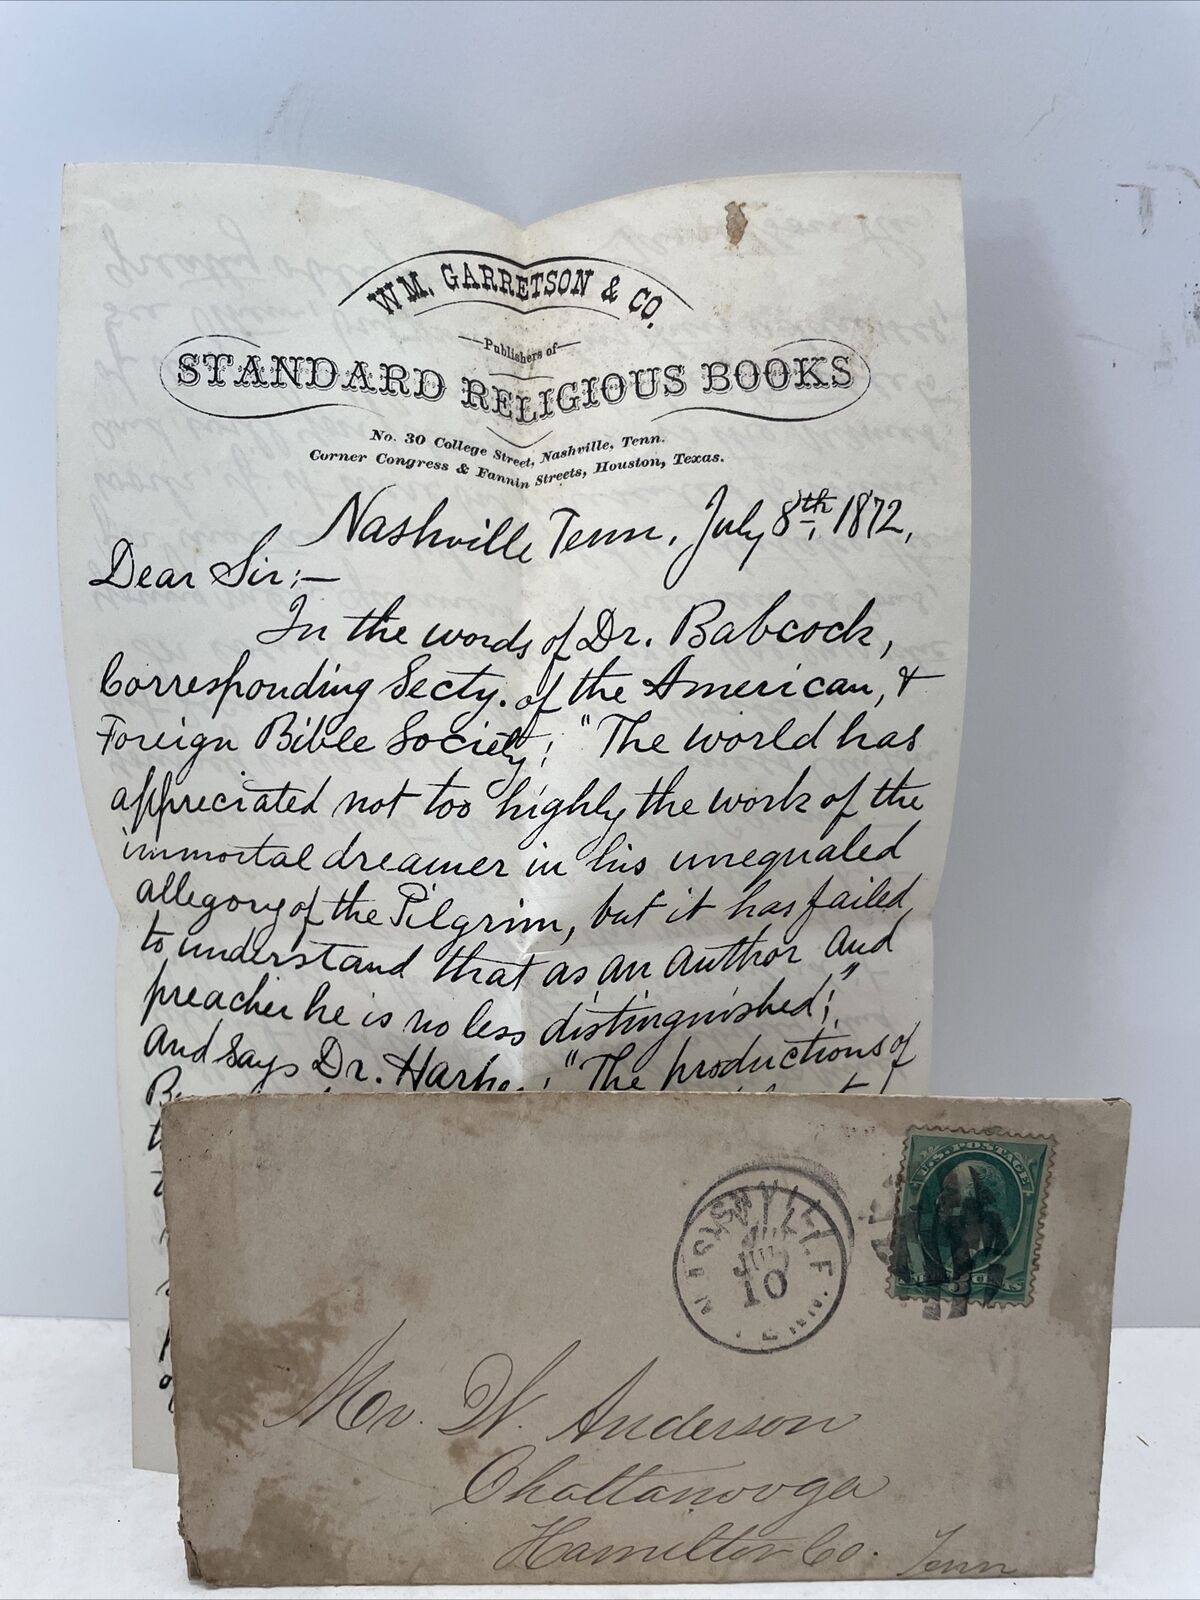 WM. GARRETSON & CO.
Publishers of
STANDARD RELIGIOUS BOOKS
No. 30 College Street, Nashville, Tenn.
Corner Congress & Fannin Streets, Houston, Texas.
Nashville Tenn, July 8th, 1872,
Dear Sir:—
In the words of Dr. Babcock,
Corresponding Secty. of the American, &
Foreign Bible Society; "The world has
appreciated not too highly the work of the
immortal dreamer in his unequaled
allegory of the Pilgrim, but it has failed
to understand that as an author and
preacher he is no less distinguished;"
and says Dr. : "The productions of
U.S. POSTAGE
NASHVILLE
JUL
10
TENN.
Mr. W. Anderson
Chattanooga
Hamilton Co. Tenn